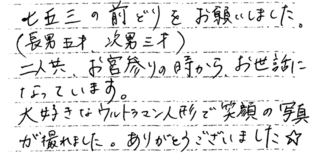 七五三の前どりをお願いしました。
(長男五才、次男三才)
二人共、お宮参りの時から、お世話に
なっています。
大好きなウルトラマン人形で笑顔の写真
が撮れました。ありがとうございました☆